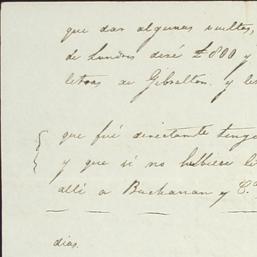 que dar algunas vueltas,
de Londres deré £800 y
letras de Gibraltar. y le
que fué directante teng
y que si no hubiese li
allé a Buchanan y C.ª
dias.